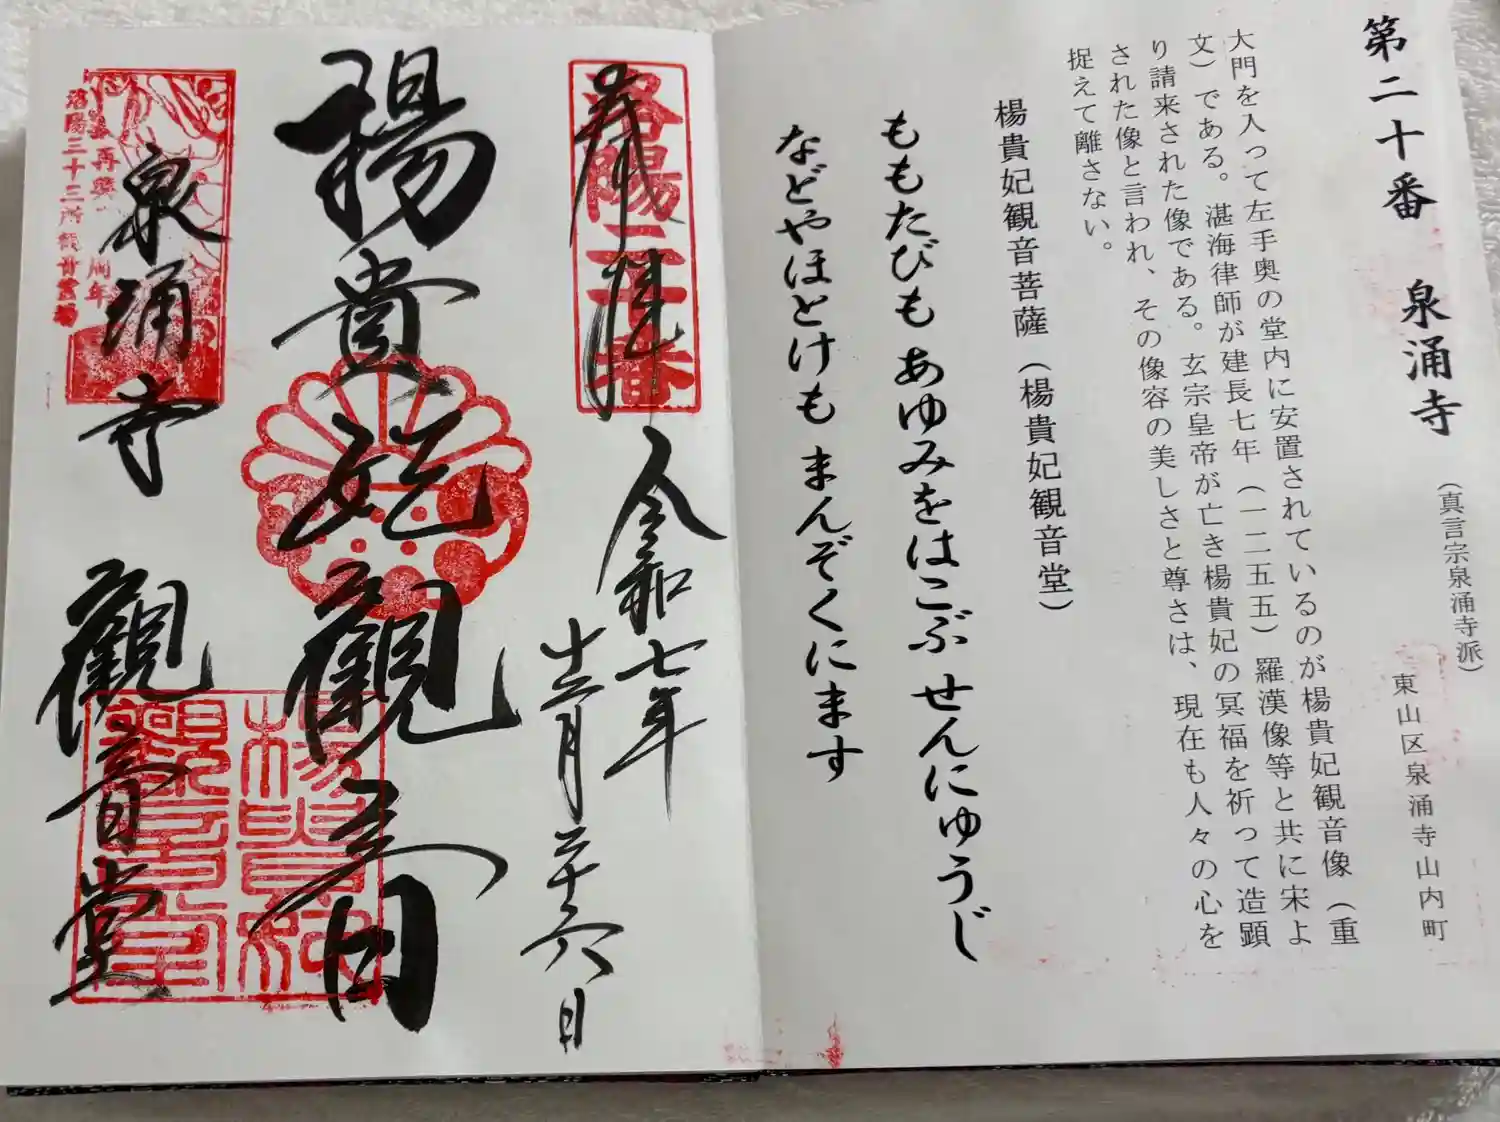 第二十番 泉涌寺（真言宗泉涌寺派）
東山区泉涌寺山内町
大門を入って左手奥の堂内に安置されているのが楊貴妃観音像（重
文）である。湛海律師が建長七年（一二五五）羅漢像等と共に宋よ
り請来された像である。玄宗皇帝が亡き楊貴妃の冥福を祈って造顕
された像と言われ、その像容の美しさと尊さは、現在も人々の心を
捉えて離さない。
楊貴妃観音菩薩（楊貴妃観音堂）
ももたびも あゆみをはこぶ せんにゅうじ
などやほとけも まんぞくにます
洛陽二十番
奉拝 令和七年
十二月二十六日
楊貴妃観音
泉涌寺 觀音堂
再興 周年
洛陽三十三所観音霊場
楊貴妃
觀音堂